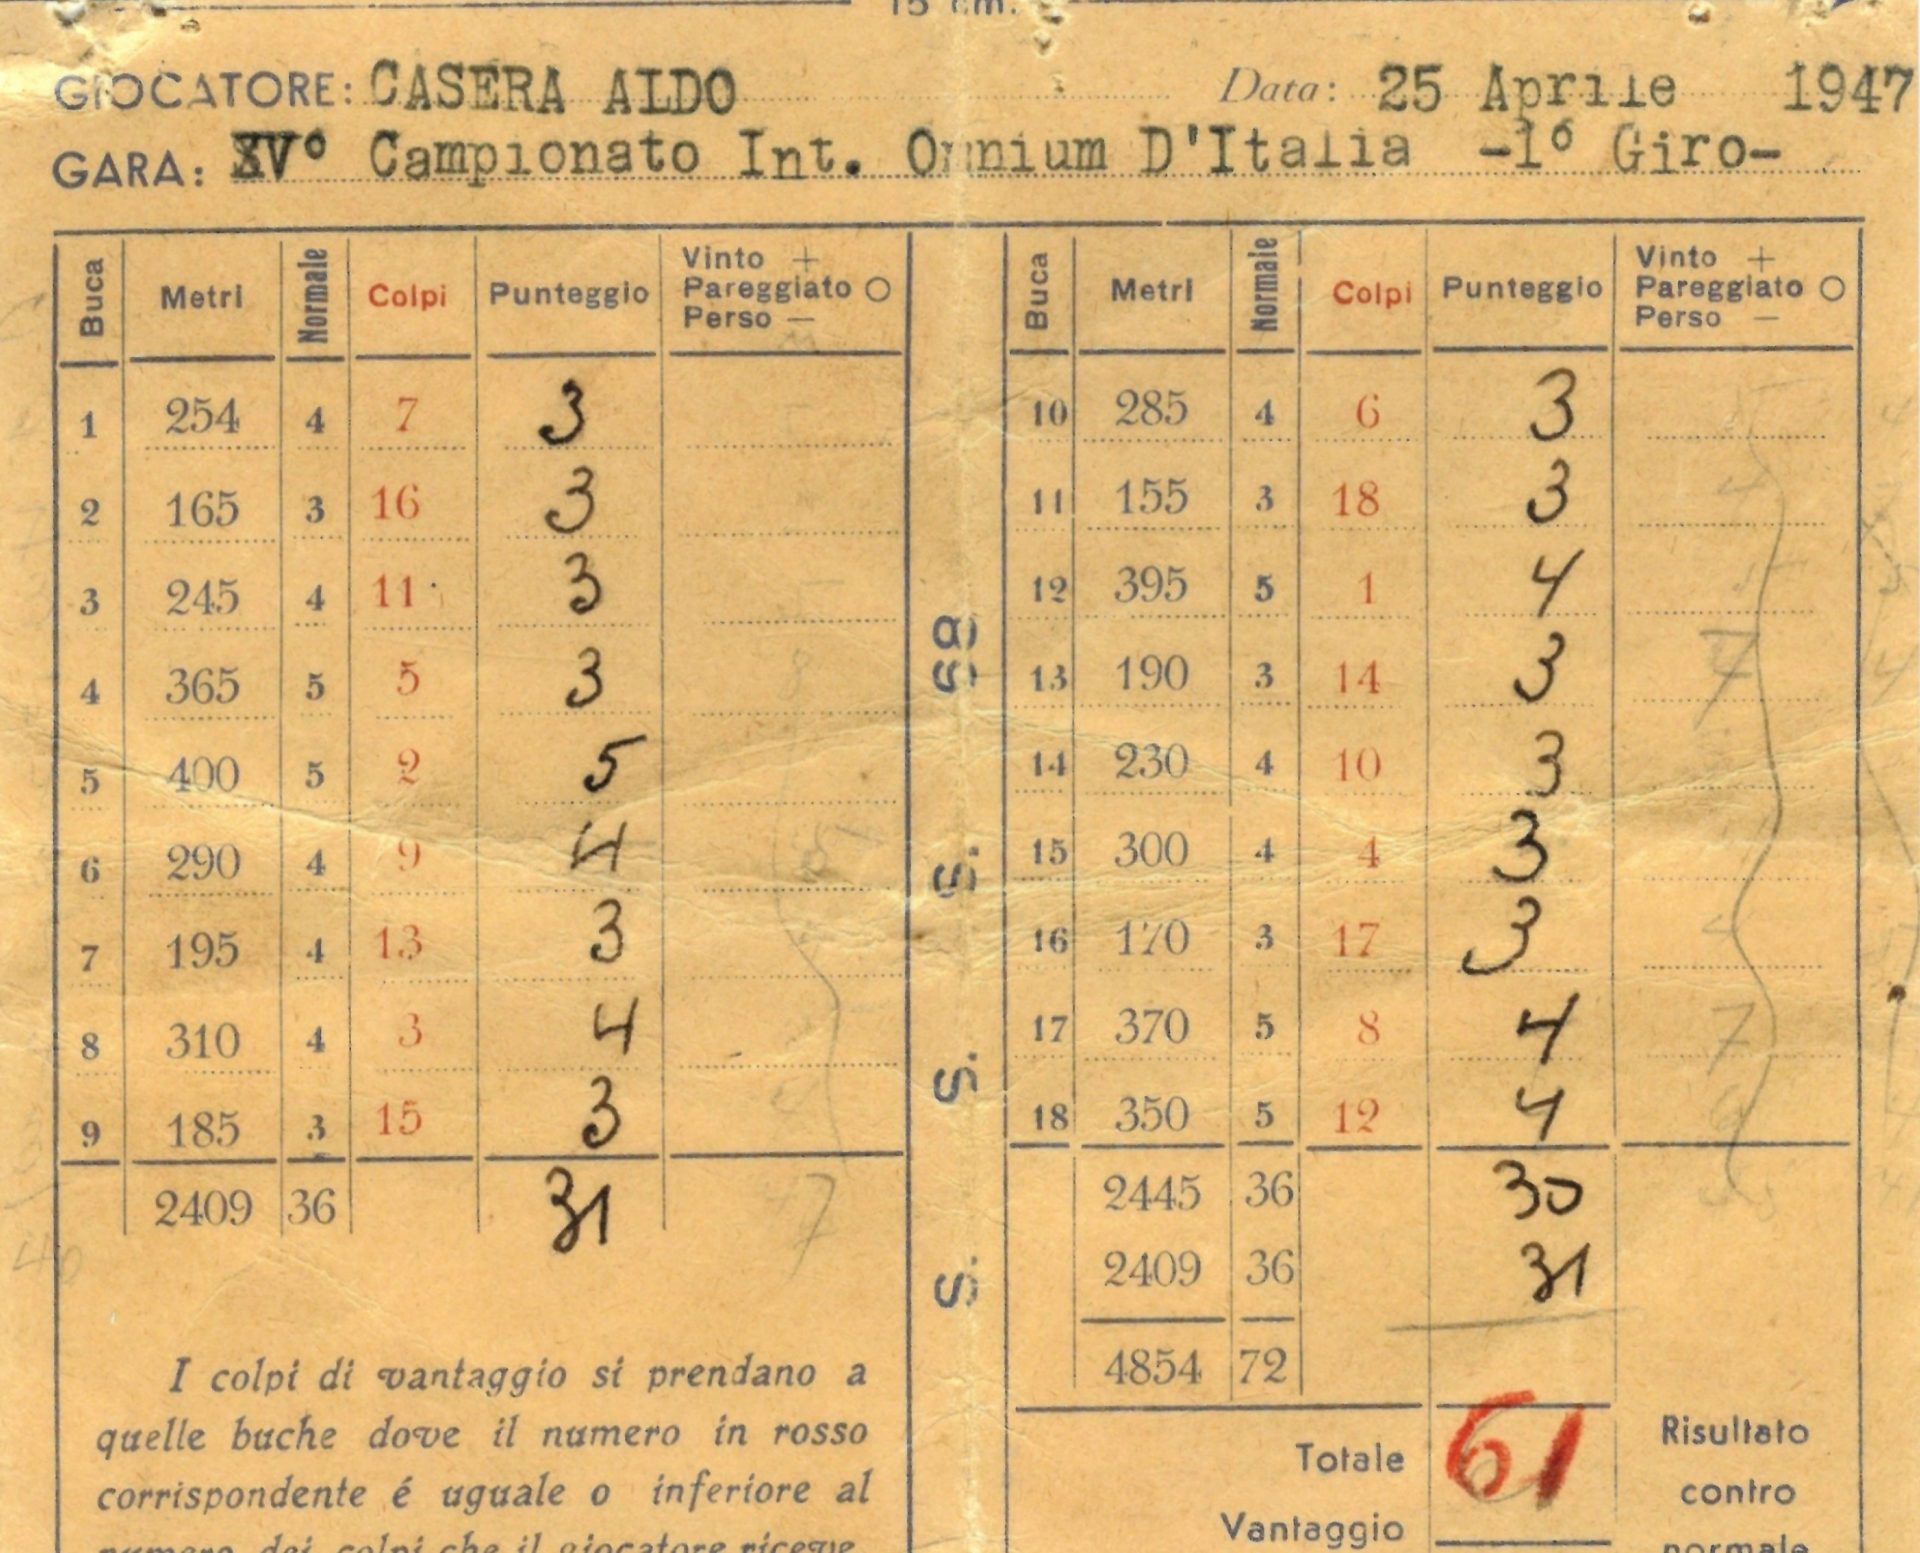 15 cm.
GIOCATORE: CASERA ALDO Data: 25 Aprile 1947
GARA: XV° Campionato Int. Omnium D'Italia -1° Giro-
Buca Metri Normale Colpi Punteggio Vinto + Pareggiato O Perso —
1 254 4 7 3
2 165 3 16 3
3 245 4 11 3
4 365 5 5 3
5 400 5 2 5
6 290 4 9 4
7 195 4 13 3
8 310 4 3 4
9 185 3 15 3
2409 36 31
I colpi di vantaggio si prendano a
quelle buche dove il numero in rosso
corrispondente é uguale o inferiore al
numero dei colpi che il giocatore riceve
S. S. S. 68
Buca Metri Normale Colpi Punteggio Vinto + Pareggiato O Perso —
10 285 4 6 3
11 155 3 18 3
12 395 5 1 4
13 190 3 14 3
14 230 4 10 3
15 300 4 4 3
16 170 3 17 3
17 370 5 8 4
18 350 5 12 4
2445 36 30
2409 36 31
4854 72
Totale 61
Vantaggio
Risultato
contro
normale